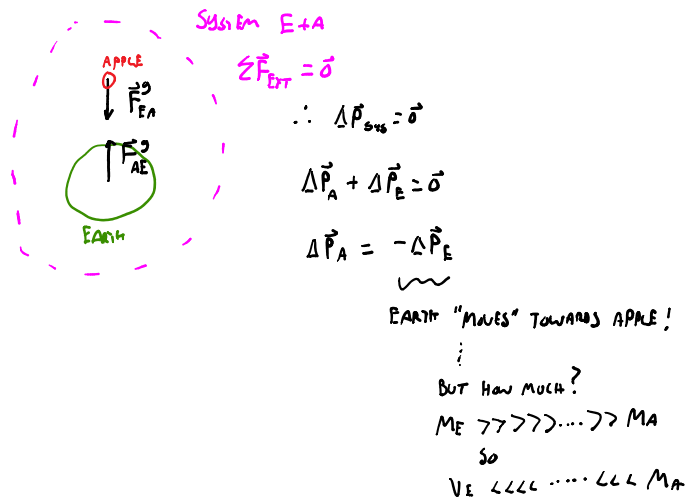 SYSTEM E+A
ΣF⃗_EXT = 0⃗
APPLE
F⃗^g_EA
F⃗^g_AE
EARTH
∴ ΔP⃗_sys = 0⃗
ΔP⃗_A + ΔP⃗_E = 0⃗
ΔP⃗_A = -ΔP⃗_E
EARTH "MOVES" TOWARDS APPLE!
⋮
BUT HOW MUCH?
M_E >>>>>....>> M_A
SO
V_E <<<< ..... <<< M_A